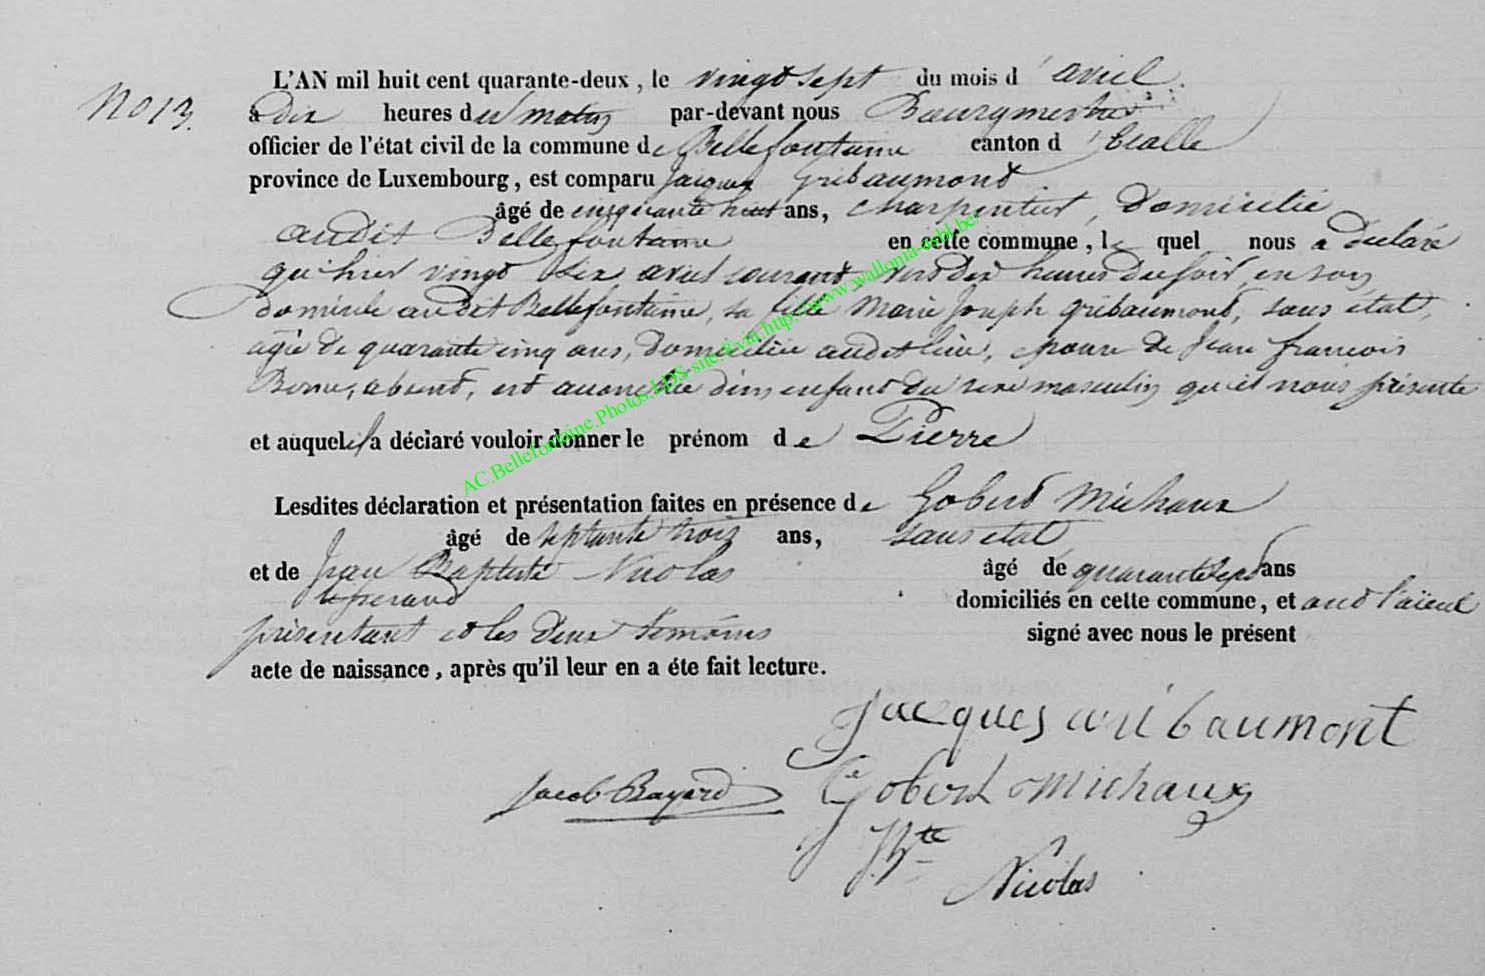 No 13.
L'AN mil huit cent quarante-deux, le vingt sept du mois d'avril
à dix heures du matin par-devant nous Bourgmestre
officier de l'état civil de la commune de Bellefontaine canton d'Etalle
province de Luxembourg, est comparu Jacques Gribaumont
âgé de cinquante huit ans, charpentier, domicilié
audit Bellefontaine en cette commune, lequel nous a déclaré
qu'hier vingt six avril courant, vers dix heures du soir, en son
domicile audit Bellefontaine, sa fille Marie Joseph Gribaumont, sans état,
agée de quarante cinq ans, domiciliée audit lieu, épouse de Jean francois
absent, est accouchée d'un enfant du sexe masculin qu'il nous présente
et auquel il a déclaré vouloir donner le prénom de Pierre
Lesdites déclaration et présentation faites en présence de Gobert Michaux
âgé de septante trois ans, sans état
et de Jean Baptiste Nicolas âgé de quarante sept ans
domiciliés en cette commune, et ont l'aïeul
présentant et les deux témoins signé avec nous le présent
acte de naissance, après qu'il leur en a éte fait lecture.
Jacques Gribaumont
Jacob Bayard Gobert Michaux
J Bte
Nicolas
AC.Bellefontaine.Photos.LDS-site&via.http://www.wallonia-asbl.be/